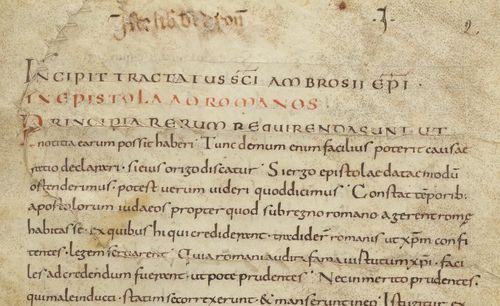 Iste lib
·I·
2
INCIPIT TRACTATUS SCI AMBROSII EPI·
IN EPISTOLA AD ROMANOS
PRINCIPIA RERUM REQUIRENDA SUNT UT
notitia earum possit haberi· Tunc demum enim facilius poterit causae
ratio declarari· si eius origo discatur· Si ergo epistolae datae modū
ostenderimus· potest verum videri quod dicimus· Constat temporib;
apostolorum iudaeos propter quod sub regno romano agerent rome
habitasse· ex quibus hi qui crediderant· tradider̄ romanis ut xp̄m confi
tentes· legem servarent· Quia romani audita fama virtutum xp̄i· faci
les ad credendum fuerant· ut pote prudentes· Nec inmerito prudentes·
qui male inducti· statim se correxerunt· & manserunt in eo·